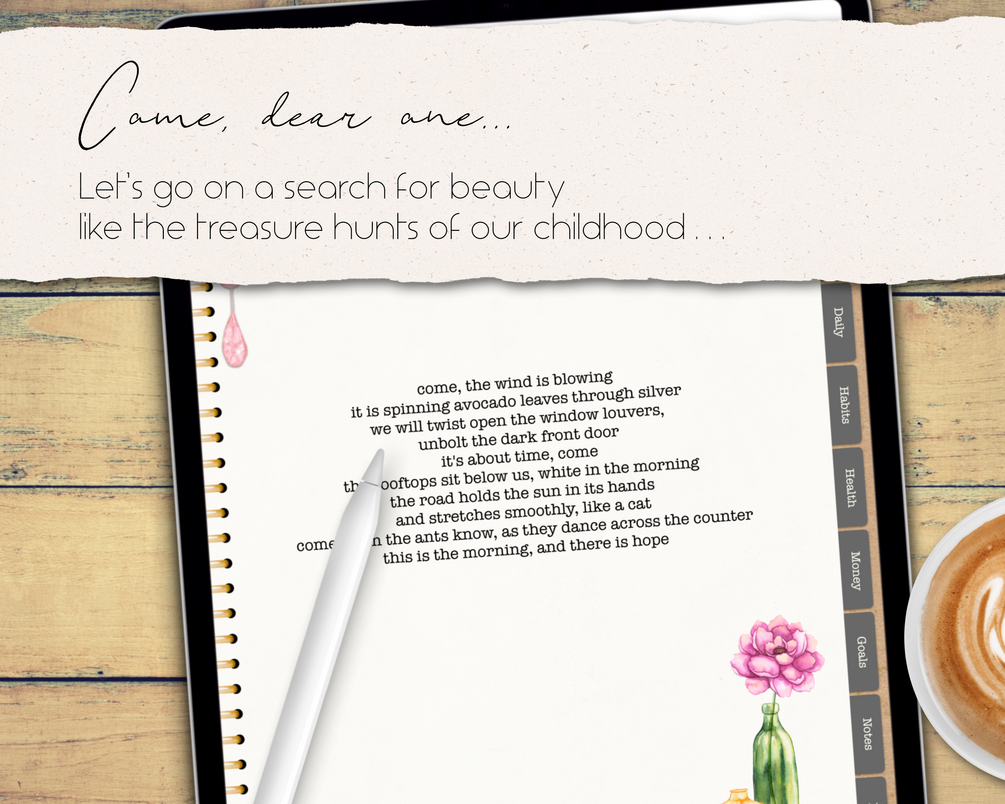 Come, dear one...
Let's go on a search for beauty
like the treasure hunts of our childhood . . .
come, the wind is blowing
it is spinning avocado leaves through silver
we will twist open the window louvers,
unbolt the dark front door
it's about time, come
rooftops sit below us, white in the morning
the road holds the sun in its hands
and stretches smoothly, like a cat
come the ants know, as they dance across the counter
this is the morning, and there is hope
Daily
Habits
Health
Money
Goals
Notes